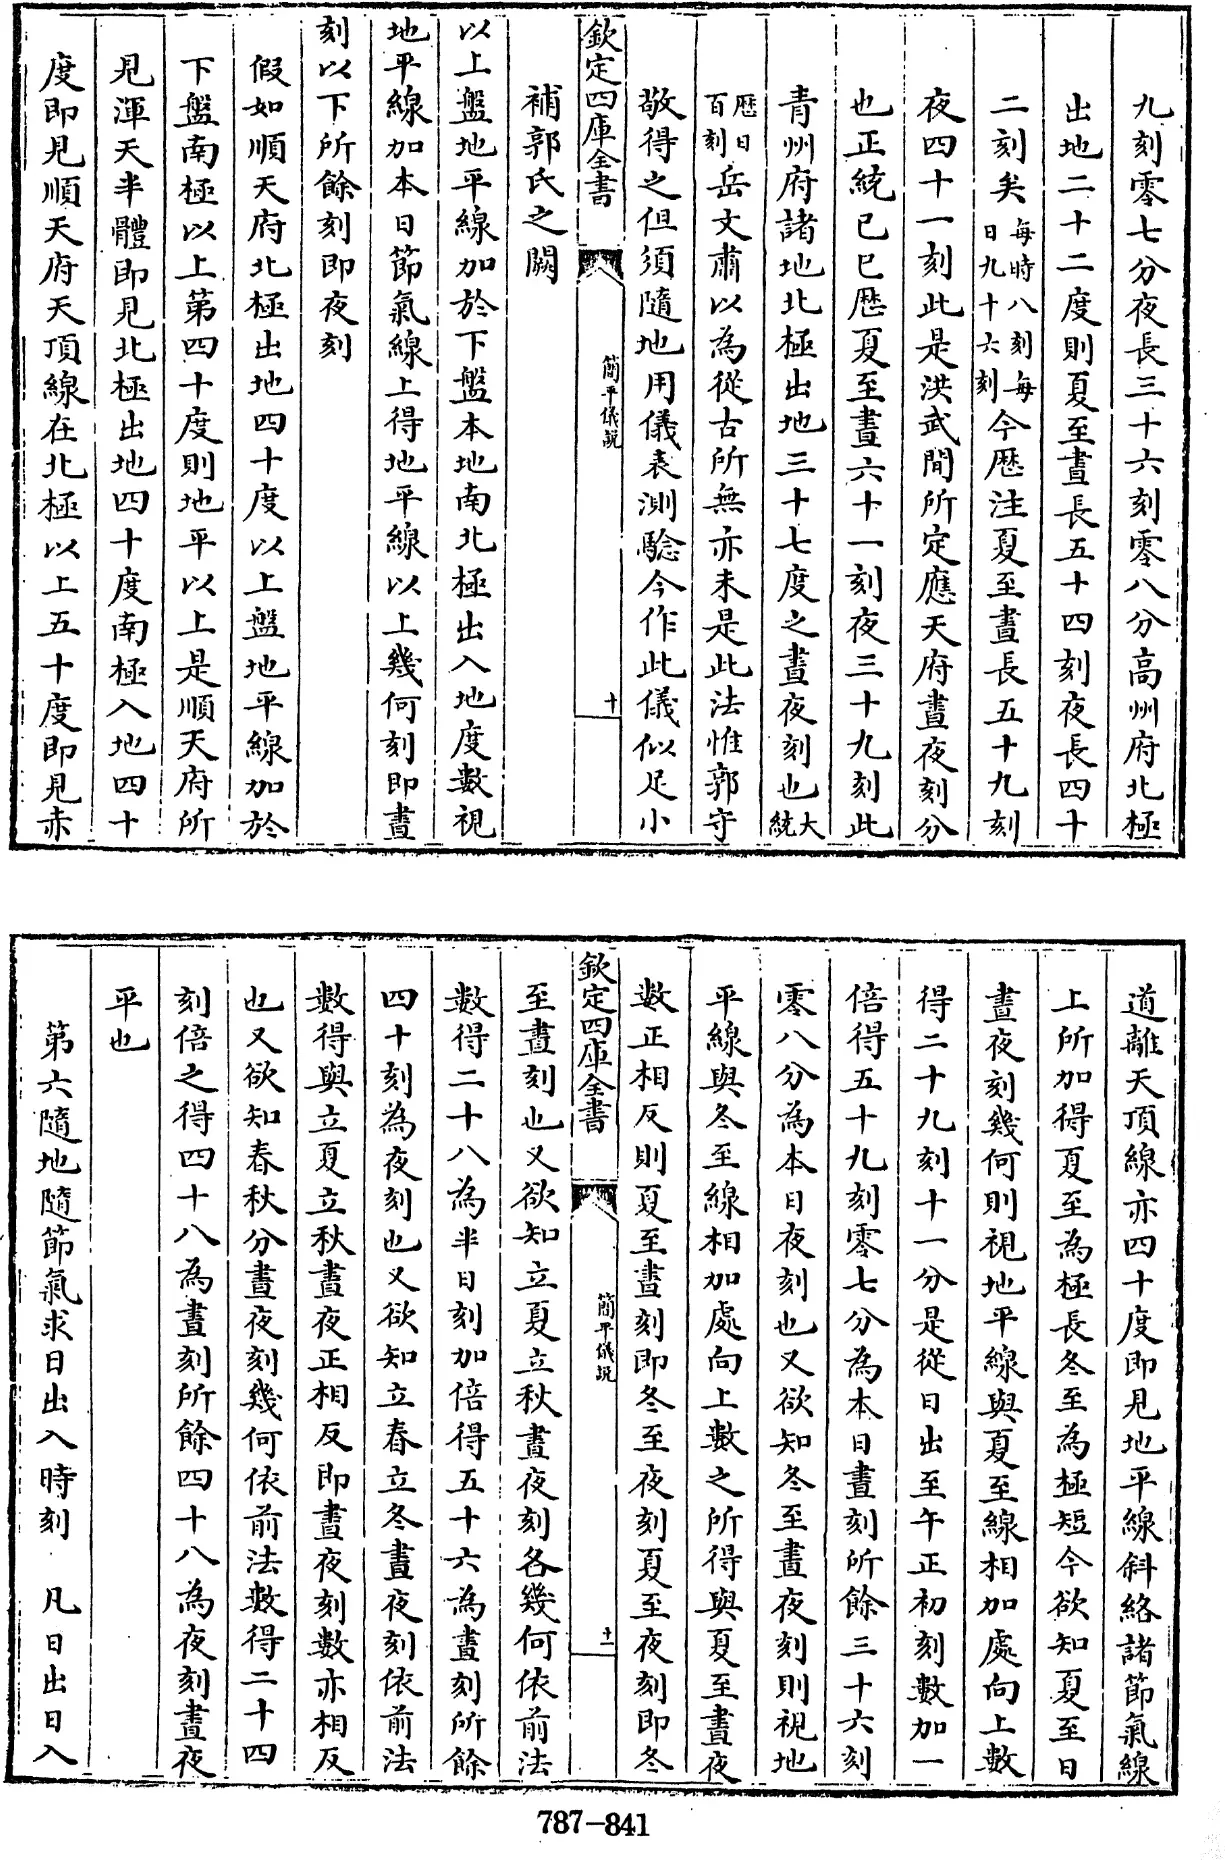 九刻零七分夜長三十六刻零八分高州府北極
出地二十二度則夏至晝長五十四刻夜長四十
二刻矣每時八刻每日九十六刻今厯注夏至晝長五十九刻
夜四十一刻此是洪武間所定應天府晝夜刻分
也正統己巳厯夏至晝六十一刻夜三十九刻此
青州府諸地北極出地三十七度之晝夜刻也大統
厯日百刻岳文肅以為從古所無亦未是此法惟郭守
敬得之但須隨地用儀表測驗今作此儀似足小
欽定四庫全書
簡平儀說
十
補郭氏之闕
以上盤地平線加於下盤本地南北極出入地度數視
地平線加本日節氣線上得地平線以上幾何刻即晝
刻以下所餘刻即夜刻
假如順天府北極出地四十度以上盤地平線加於
下盤南極以上第四十度則地平以上是順天府所
見渾天半體即見北極出地四十度南極入地四十
度即見順天府天頂線在北極以上五十度即見赤
道離天頂線亦四十度即見地平線斜絡諸節氣線
上所加得夏至為極長冬至為極短今欲知夏至日
晝夜刻幾何則視地平線與夏至線相加處向上數
得二十九刻十一分是從日出至午正初刻數加一
倍得五十九刻零七分為本日晝刻所餘三十六刻
零八分為本日夜刻也又欲知冬至晝夜刻則視地
平線與冬至線相加處向上數之所得與夏至晝夜
數正相反則夏至晝刻即冬至夜刻夏至夜刻即冬
欽定四庫全書
簡平儀說
十一
至晝刻也又欲知立夏立秋晝夜刻各幾何依前法
數得二十八為半日刻加倍得五十六為晝刻所餘
四十刻為夜刻也又欲知立春立冬晝夜刻依前法
數得與立夏立秋晝夜正相反即晝夜刻數亦相反
也又欲知春秋分晝夜刻幾何依前法數得二十四
刻倍之得四十八為晝刻所餘四十八為夜刻晝夜
平也
第六隨地隨節氣求日出入時刻 凡日出日入
787-841